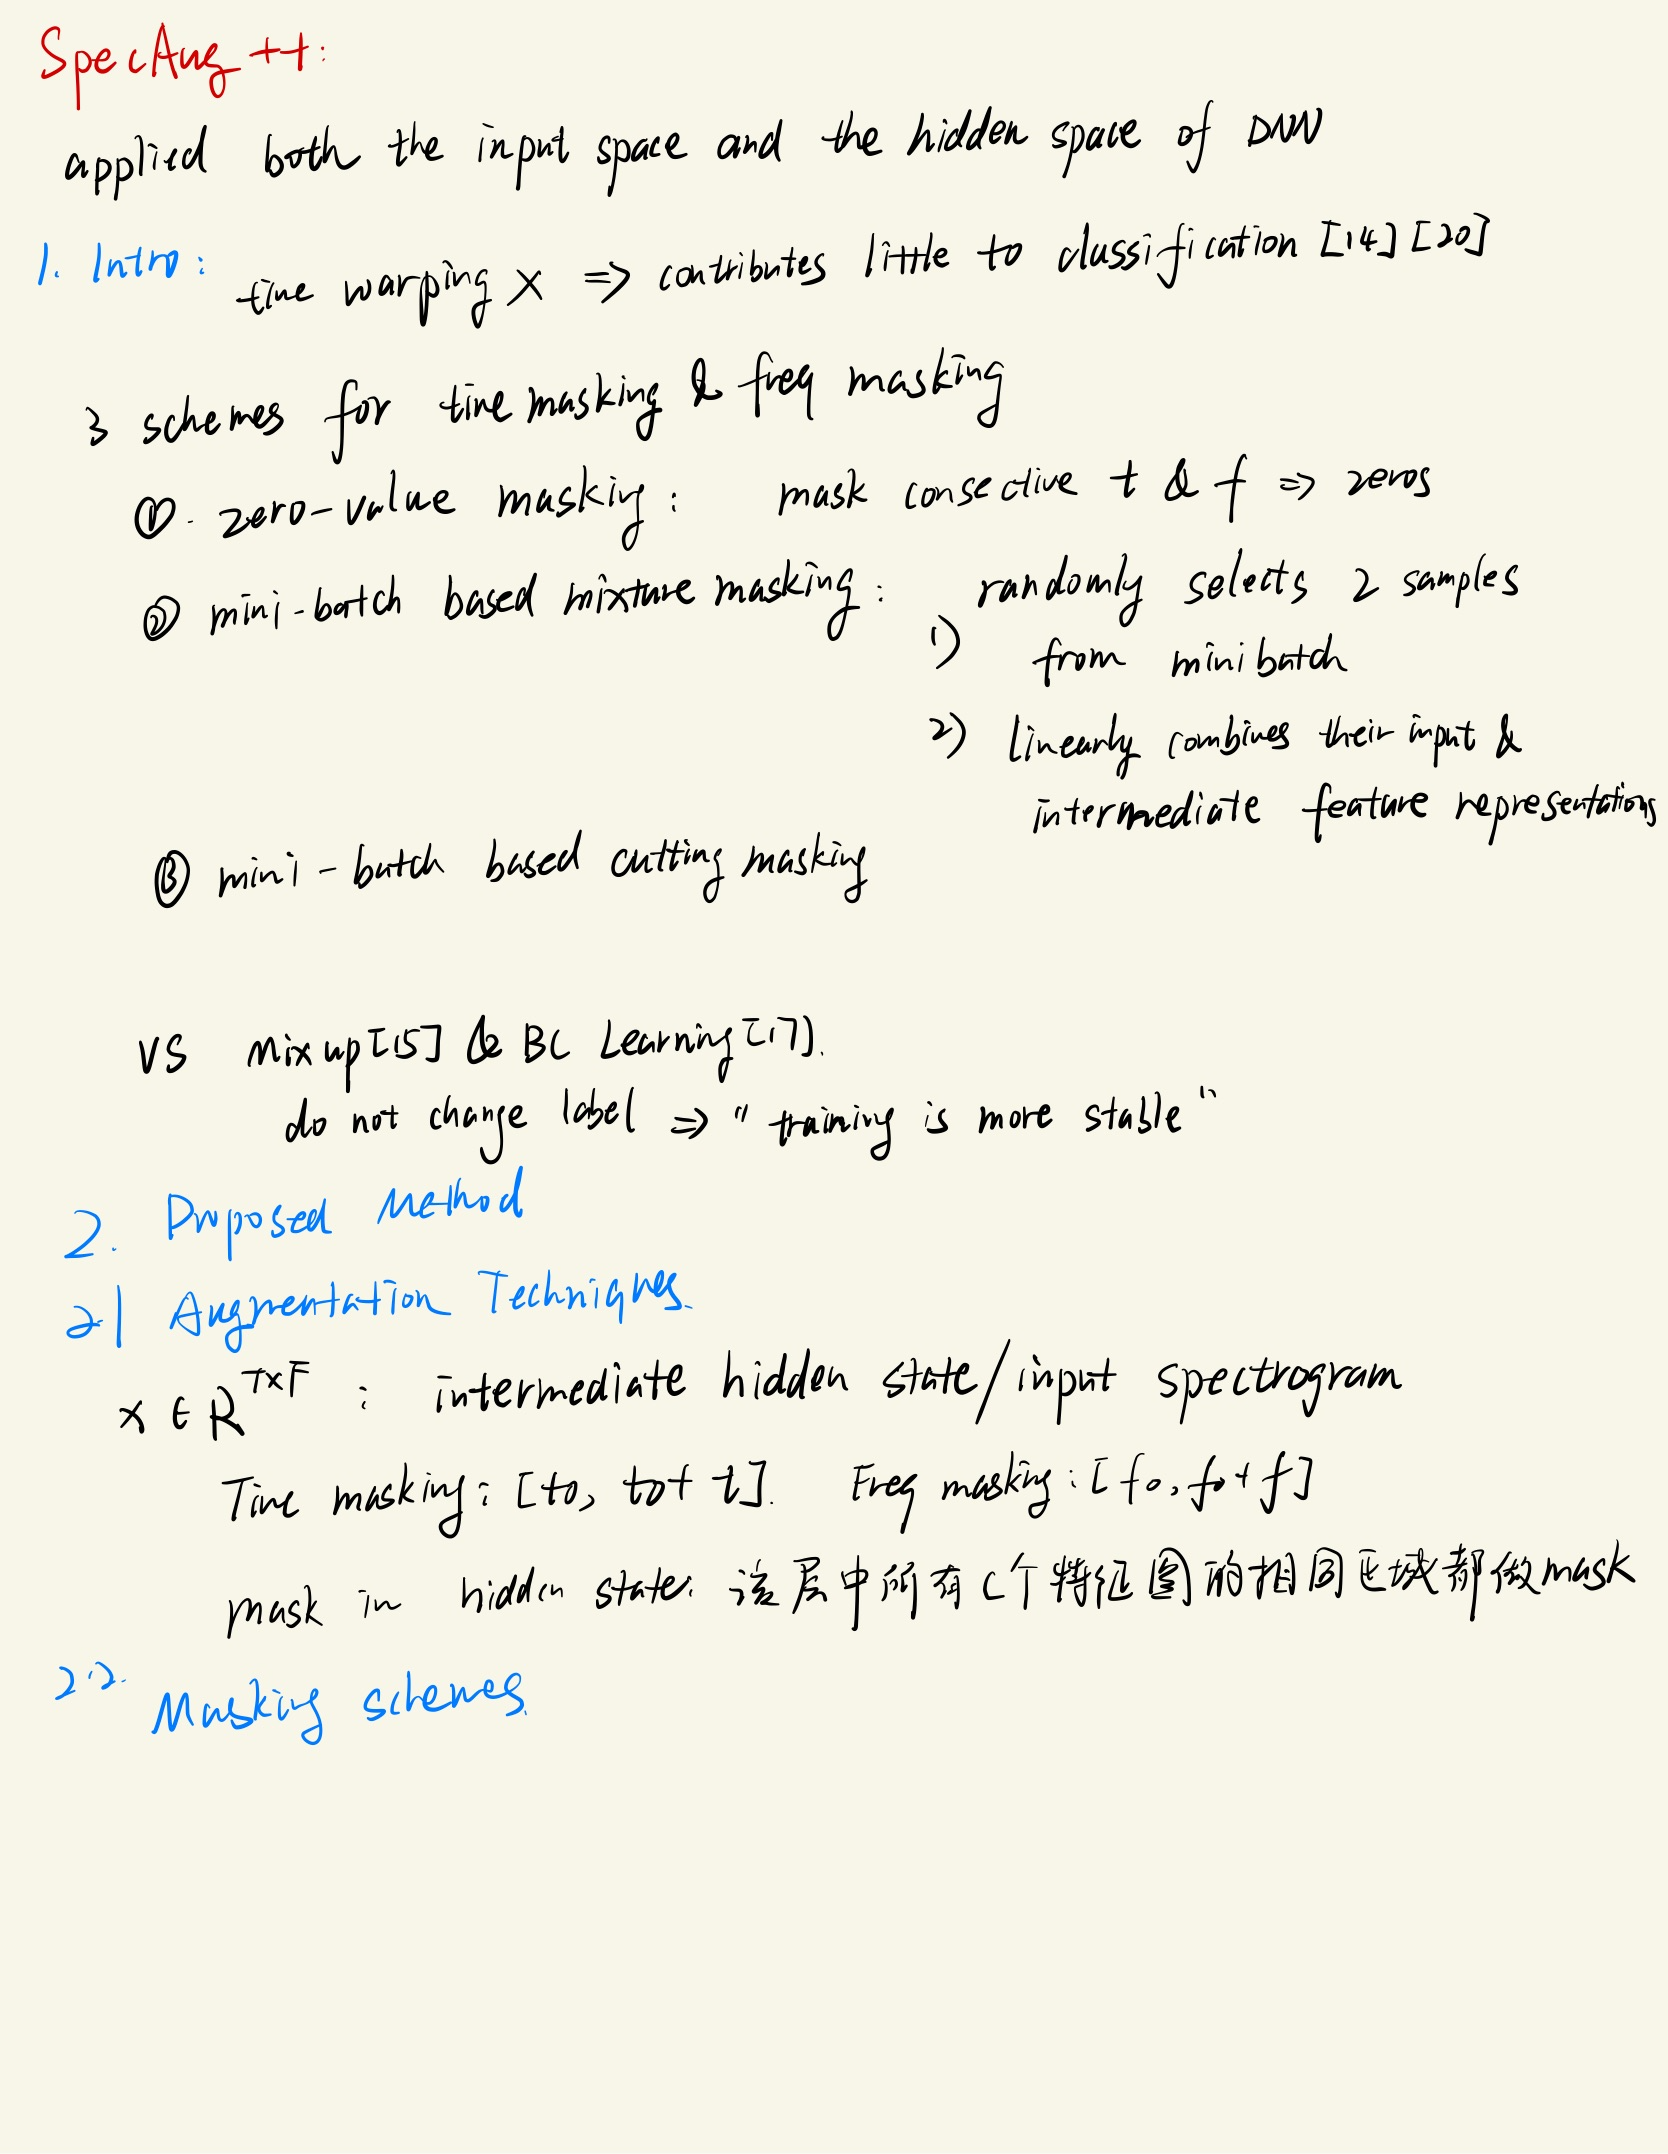 SpecAug ++:
applied both the input space and the hidden space of DNN
1. Intro:
time warping X => contributes little to classification [14] [20]
3 schemes for time masking & freq masking
①. zero-value masking: mask consective t & f => zeros
② mini-batch based mixture masking: 1) randomly selects 2 samples
from minibatch
2) linearly combines their input &
intermediate feature representations
③ mini-batch based cutting masking
VS Mixup[15] & BC Learning[17].
do not change label => "training is more stable"
2. Proposed Method
2.1 Augmentation Techniques.
x ∈ R^{T×F} : intermediate hidden state/input spectrogram
Time masking: [t0, t0+t]. Freq masking: [f0, f0+f]
mask in hidden state: 该层中所有C个特征图的相同区域都做mask
2.2. Masking schemes.